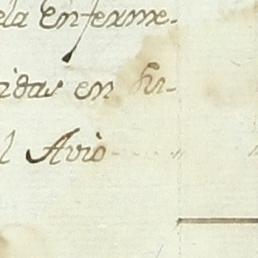 ela Enferme-
ridas en Hi-
l Avio